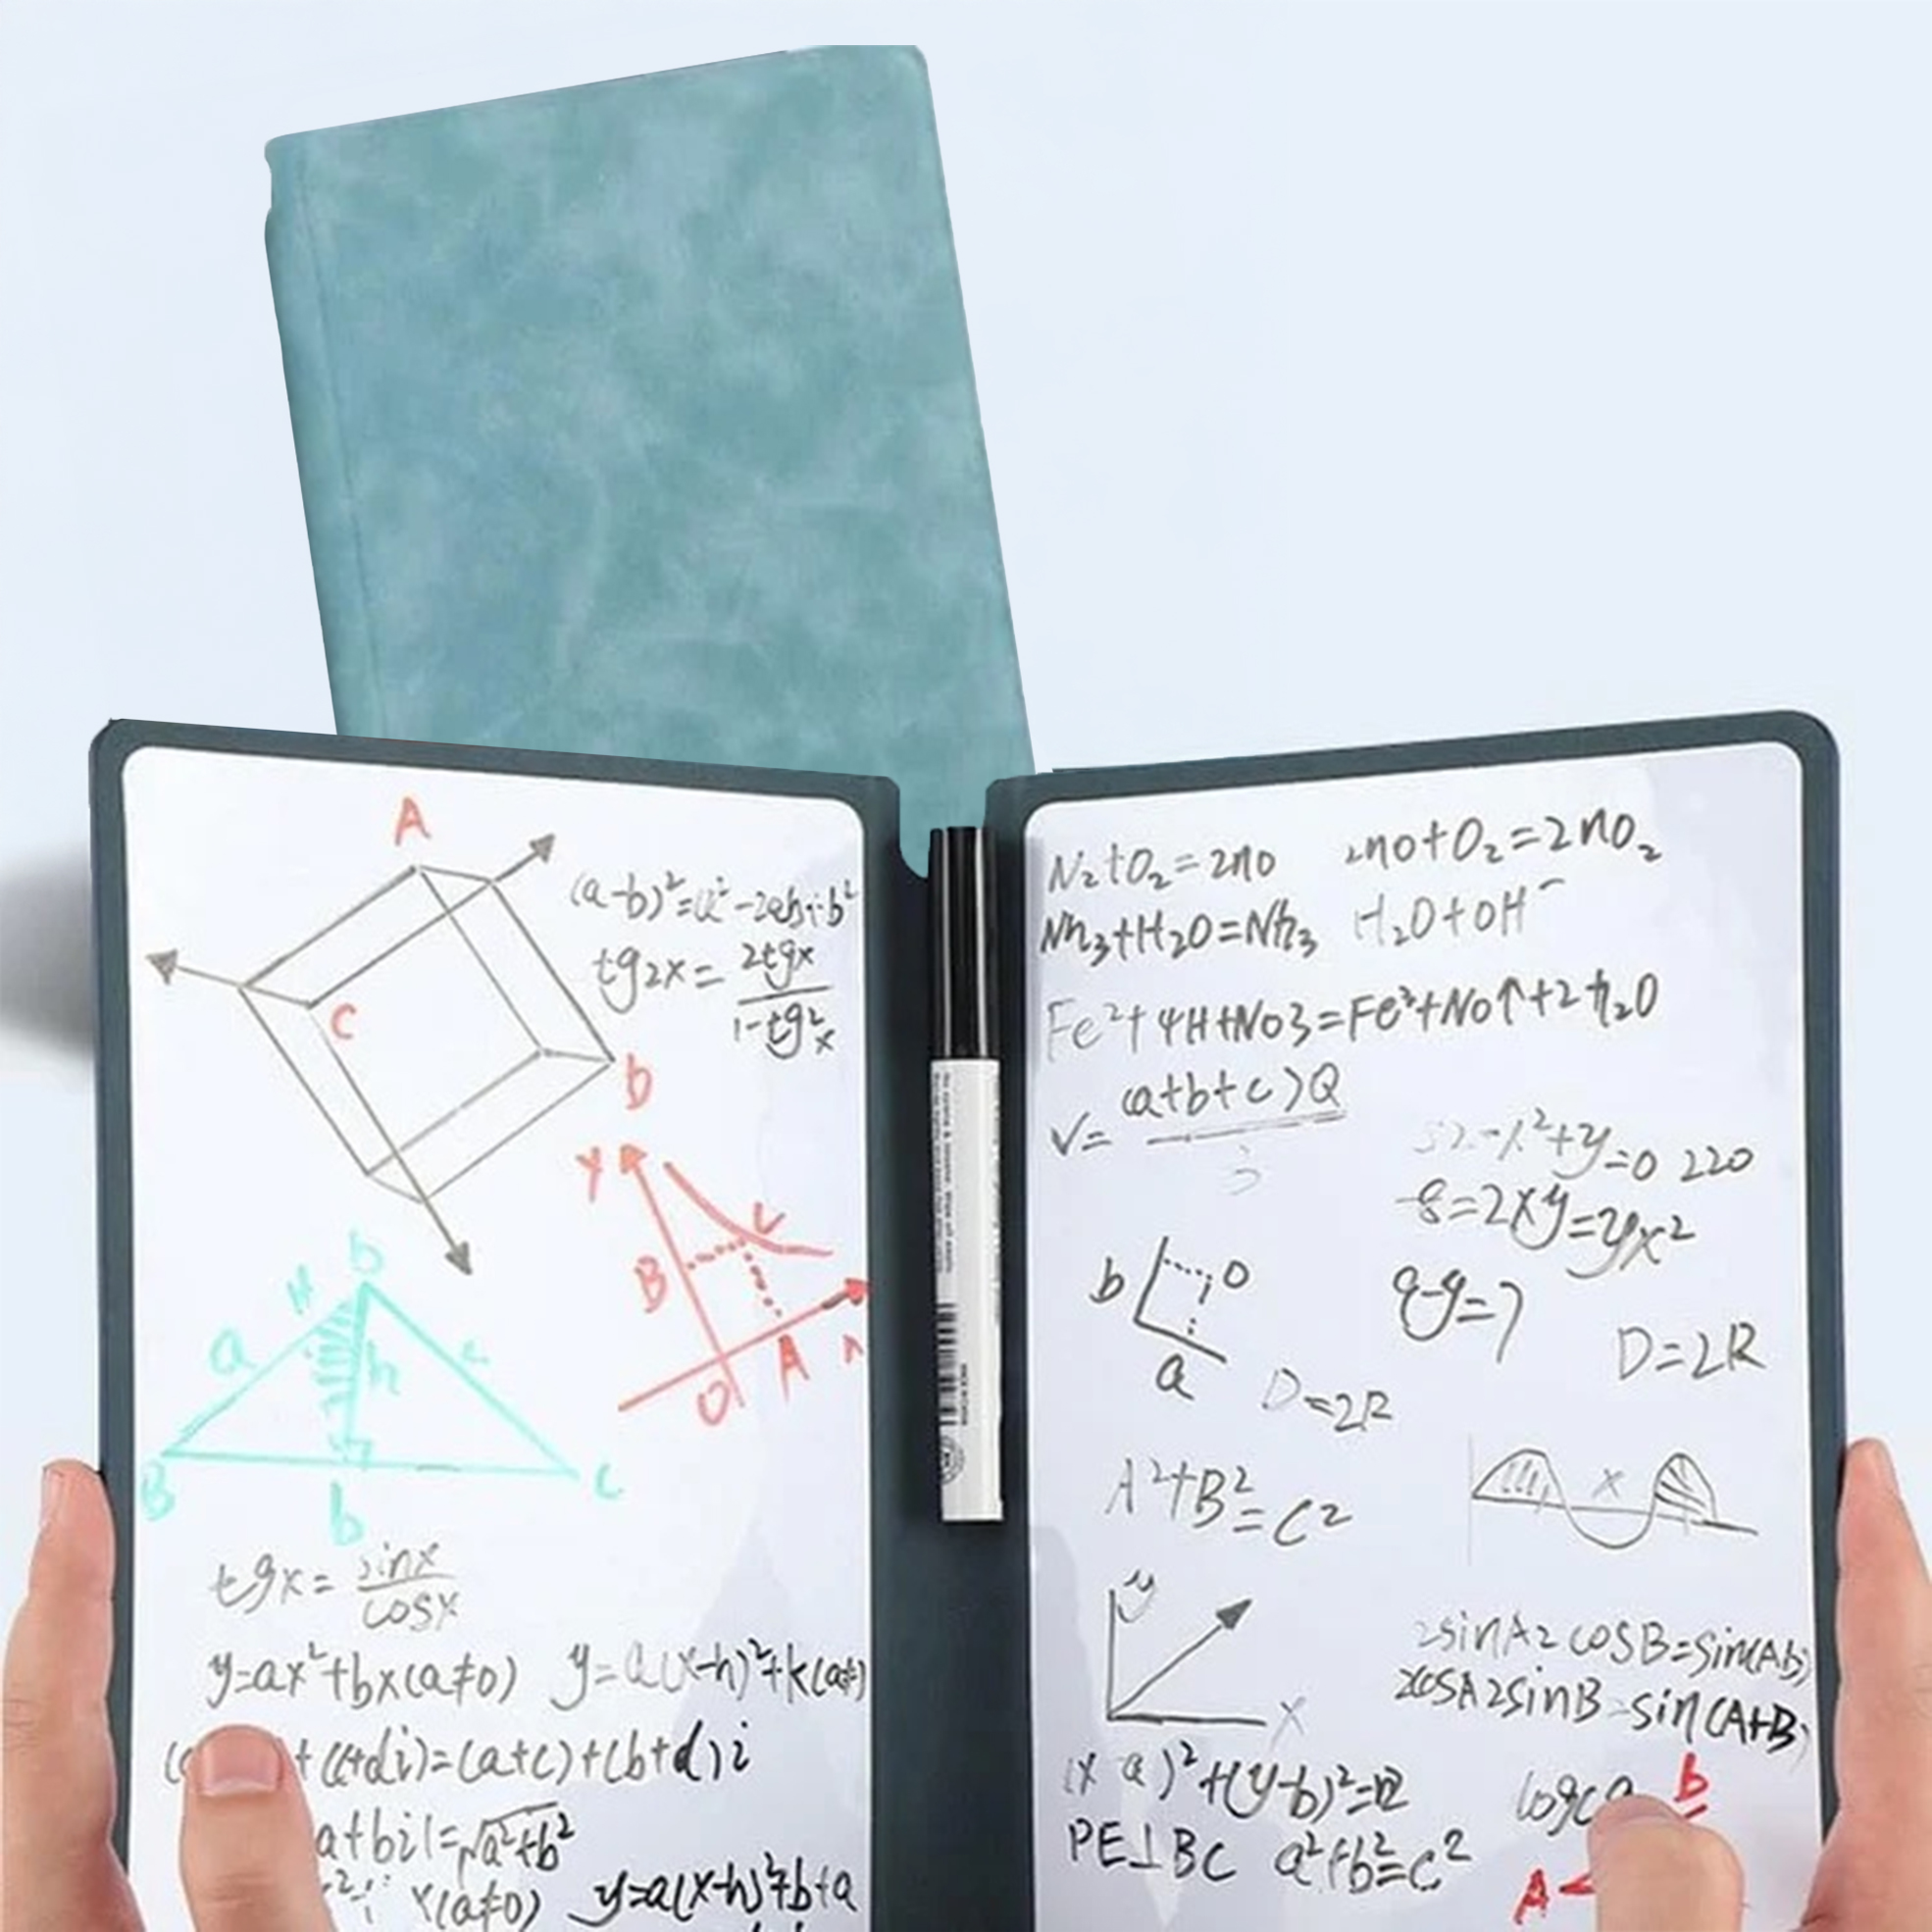 A
(a-b)²=a²-2ab+b²
tg2x= 2tgx
1-tg²x
C
b
Y
B
A
O
b
H
a
h
c
B
b
C
tgx= sinx
cosx
y=ax²+bx(a≠0) y=a(x-h)²+k(a≠)
+(c+di)=(a+c)+(b+d)i
a+bi|=√a²+b²
x(a≠0) y=a(x-h)²+b+a
N₂+O₂=2no 2no+O₂=2nO₂
Nh₃+H₂O=Nh₃ H₂O+OH⁻
Fe²+4H+No3=Fe³+No↑+2h₂O
V= (a+b+c)Q
3
52-x²+y=0 220
-8=2xy=yx²
b
O
a
D=2R
D=2R
A²+B²=C²
x
y
x
2sinA2cosB=sin(Ab)
2cosA2sinB=sin(A+B)
(x a)²+(y-b)²=R
PE⊥BC a²+b²=c²
logca
b
A<